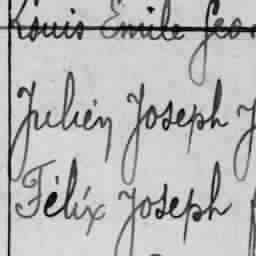 Louis Emile Geo
Julien Joseph
Félix Joseph